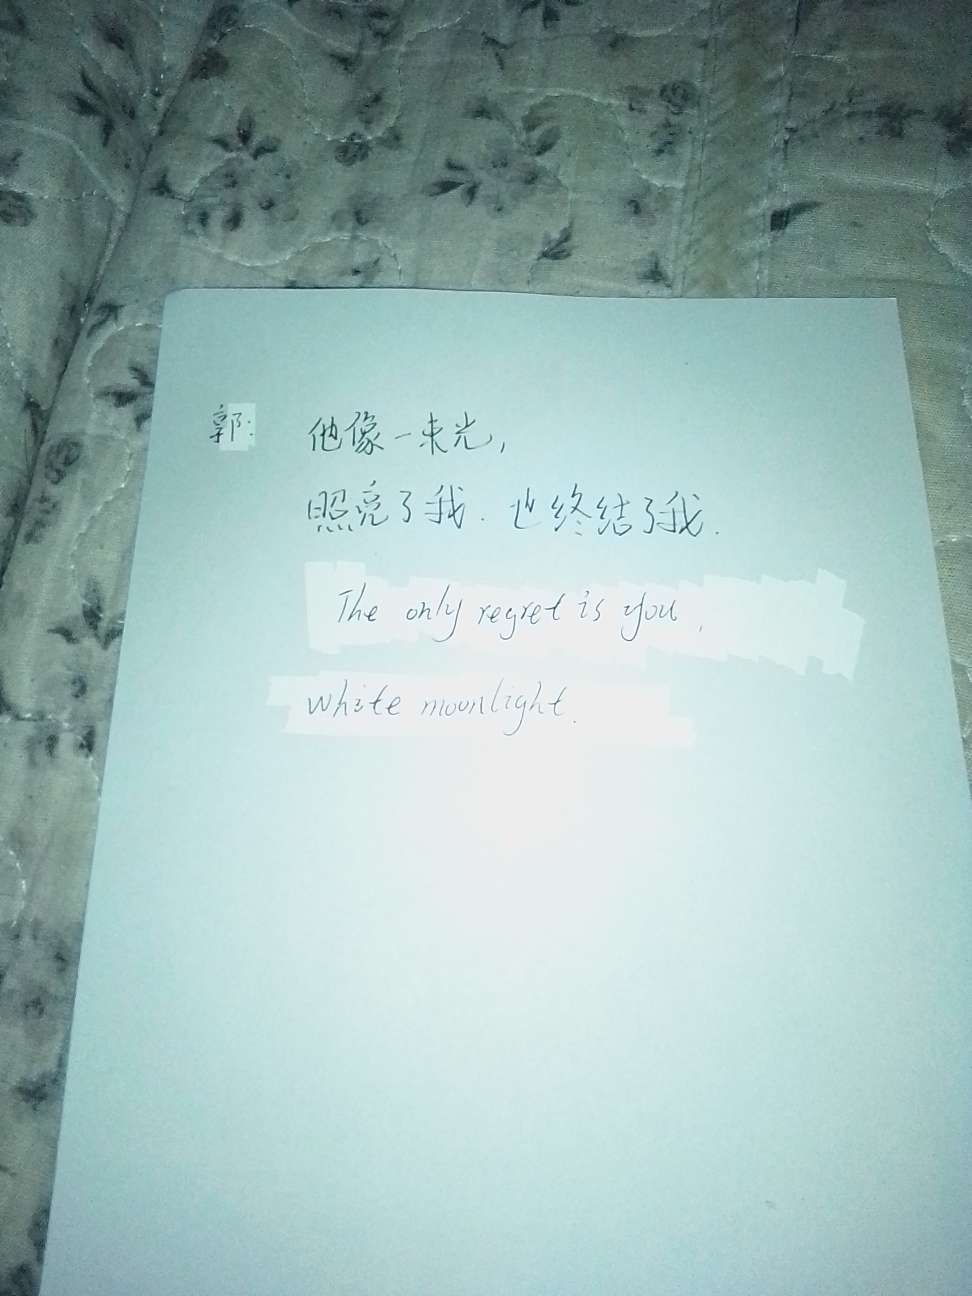 郭: 他像一束光,
照亮了我. 也终结了我.
The only regret is you,
white moonlight.